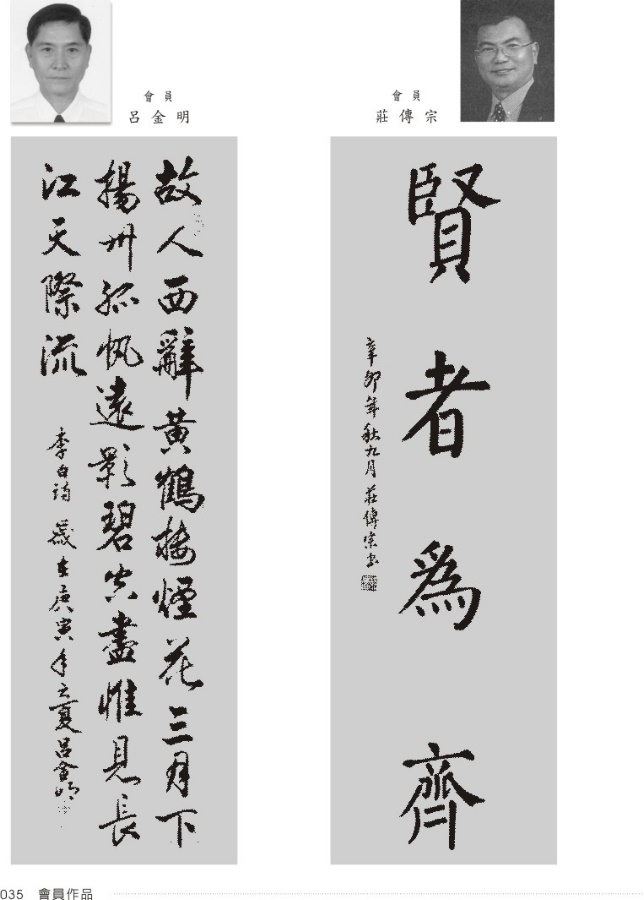 會員
莊傳宗
賢者爲齊
辛卯年秋九月莊傳宗書
會員
呂金明
故人西辭黃鶴樓煙花三月下
揚州孤帆遠影碧空盡惟見長
江天際流
李白詩 歲在庚寅年之夏呂金明
035 會員作品